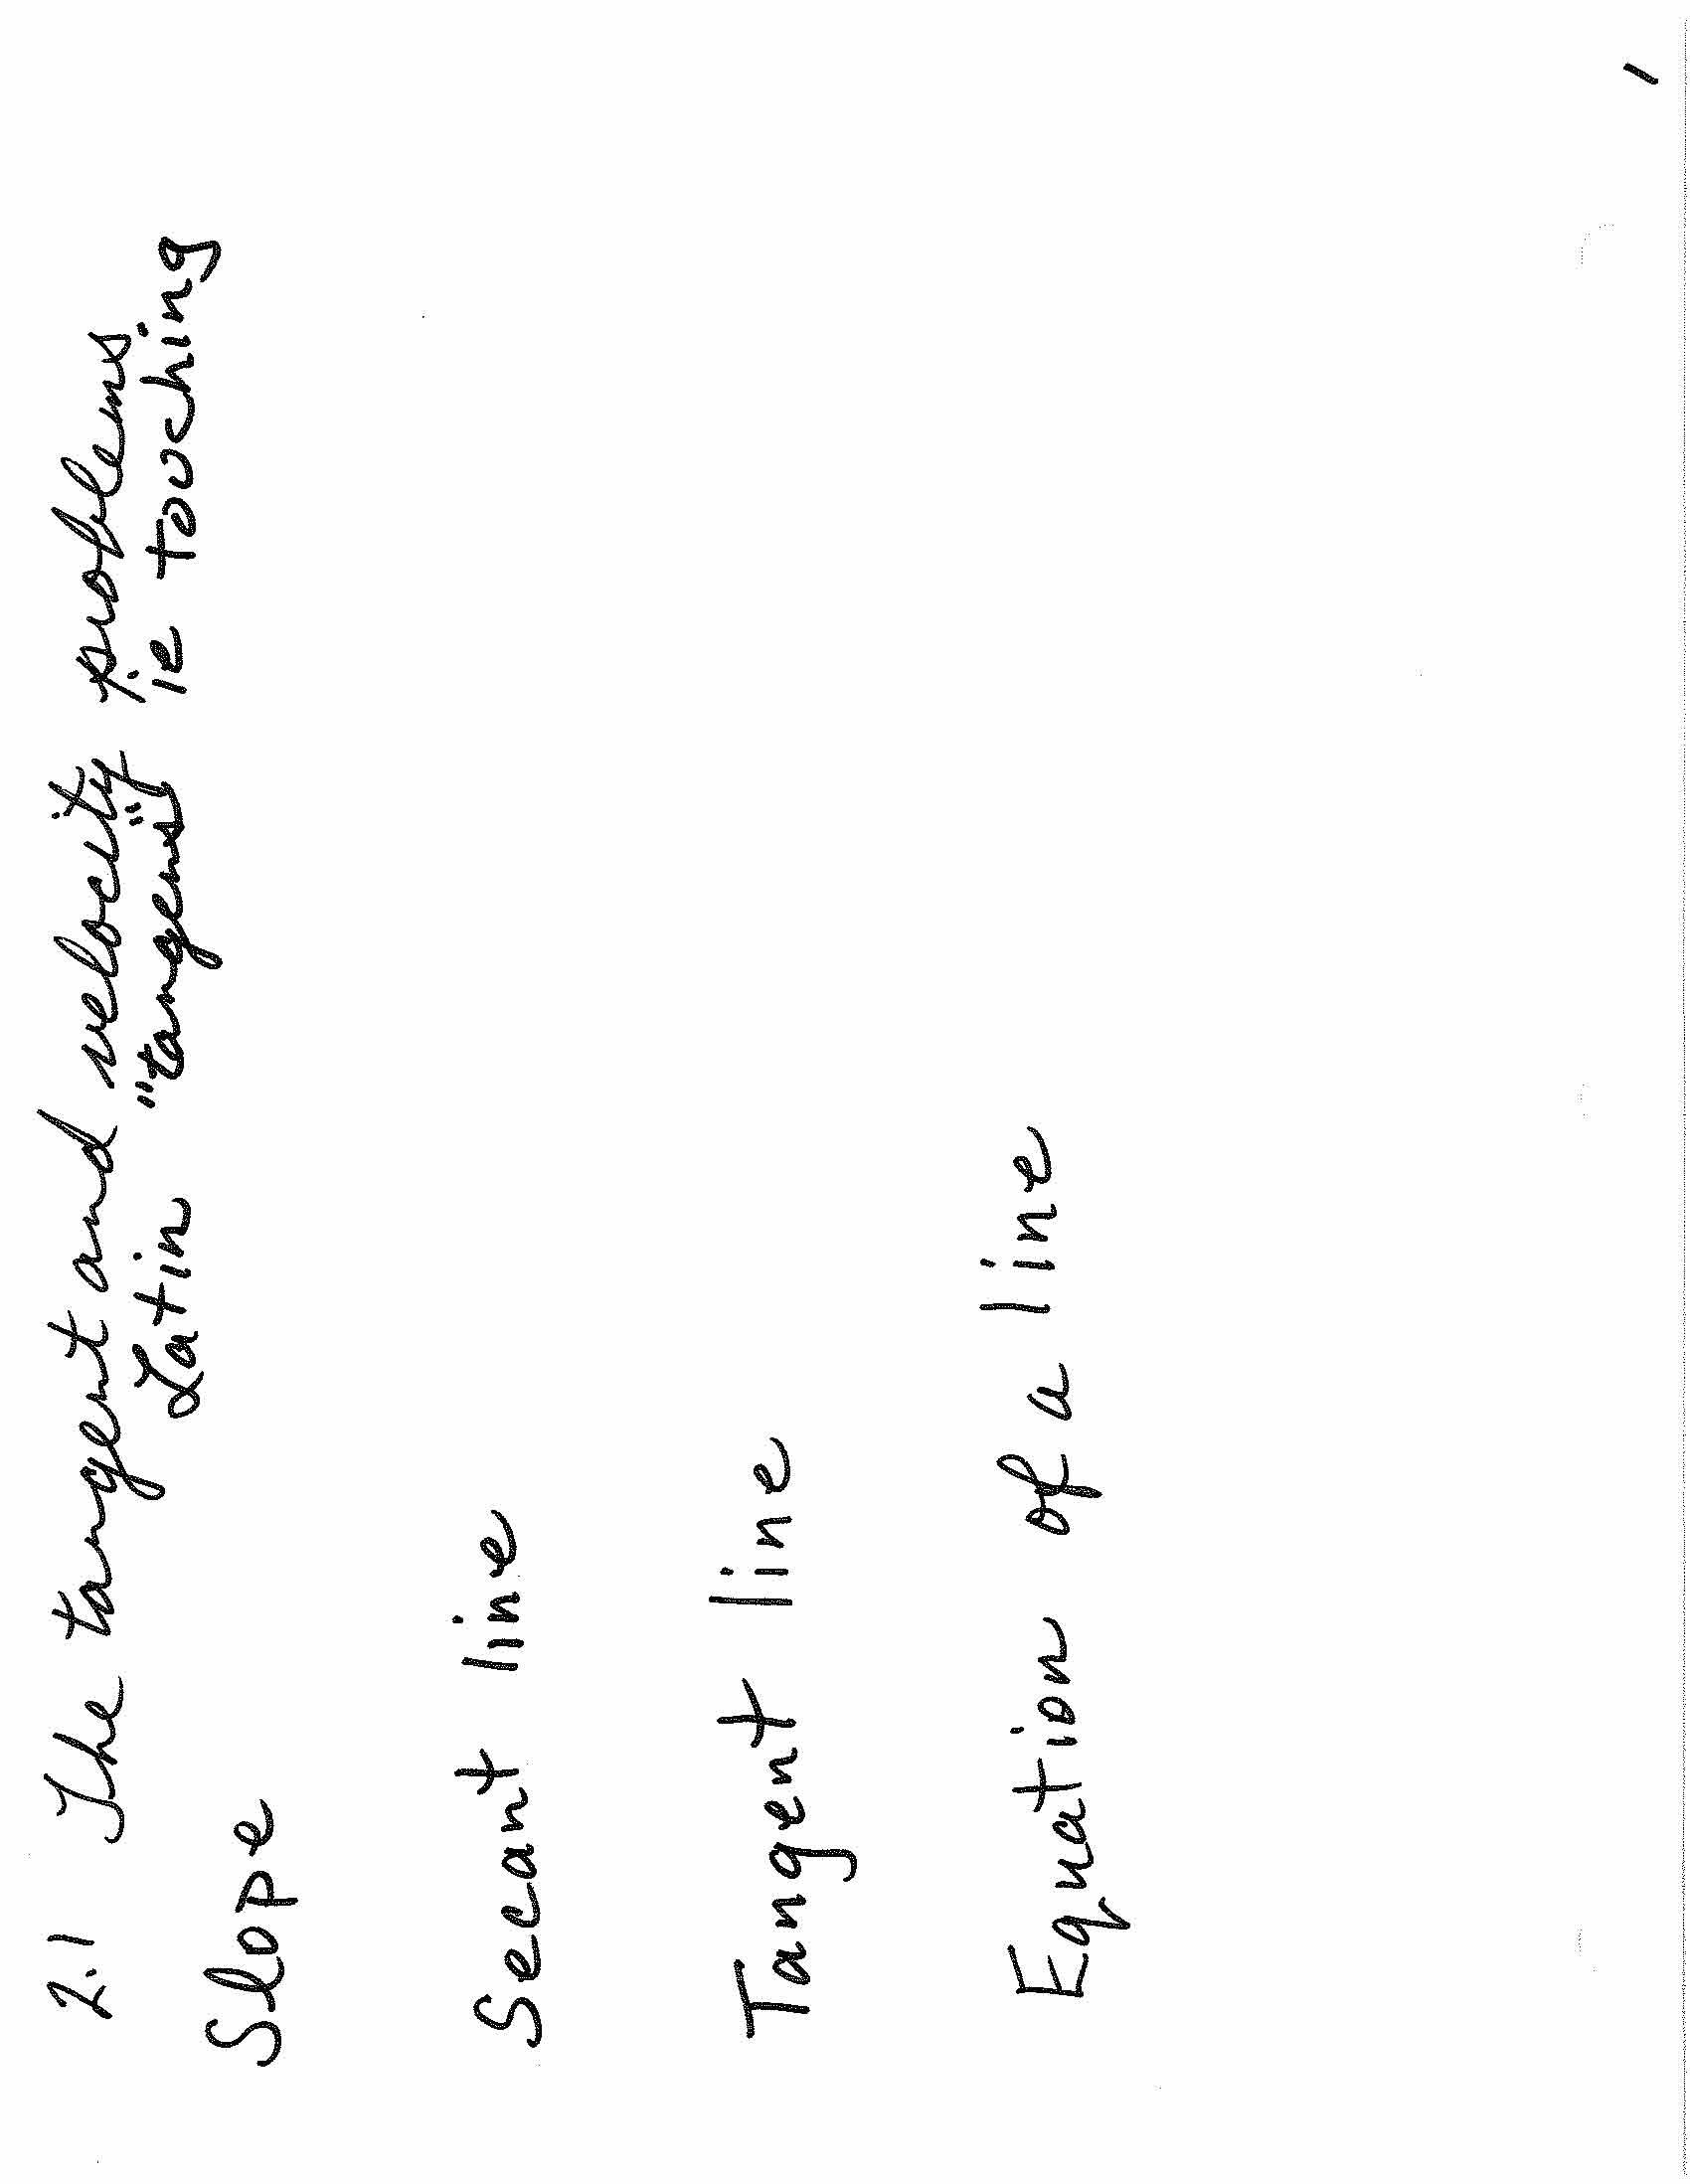 2.1 The tangent and velocity problems
Latin "tangens" ie touching
Slope
Secant line
Tangent line
Equation of a line
1